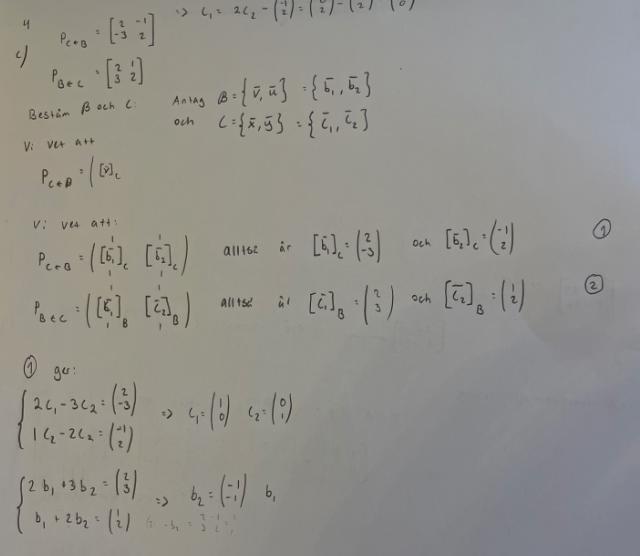 4
c) P_{C←B} = [2 -1; -3 2] => C₁ = 2C₂ - (-1 2) =
P_{B←C} = [2 1; 3 2]
Bestäm B och C: Antag B = {v̄, ū} = {b̄₁, b̄₂}
och C = {x̄, ȳ} = {c̄₁, c̄₂}
Vi vet att
P_{C←B} = ( [v̄]_C
Vi vet att:
P_{C←B} = ( [b̄₁]_C [b̄₂]_C ) alltså är [b̄₁]_C = (2 -3) och [b̄₂]_C = (-1 2) ①
P_{B←C} = ( [c̄₁]_B [c̄₂]_B ) alltså är [c̄₁]_B = (2 3) och [c̄₂]_B = (1 2) ②
① ger:
{ 2C₁ - 3C₂ = (2 -3) => C₁ = (1 0) C₂ = (0 1)
1C₂ - 2C₂ = (-1 2)
{ 2b₁ + 3b₂ = (2 3) => b₂ = (-1 -1) b₁
b₁ + 2b₂ = (1 2)